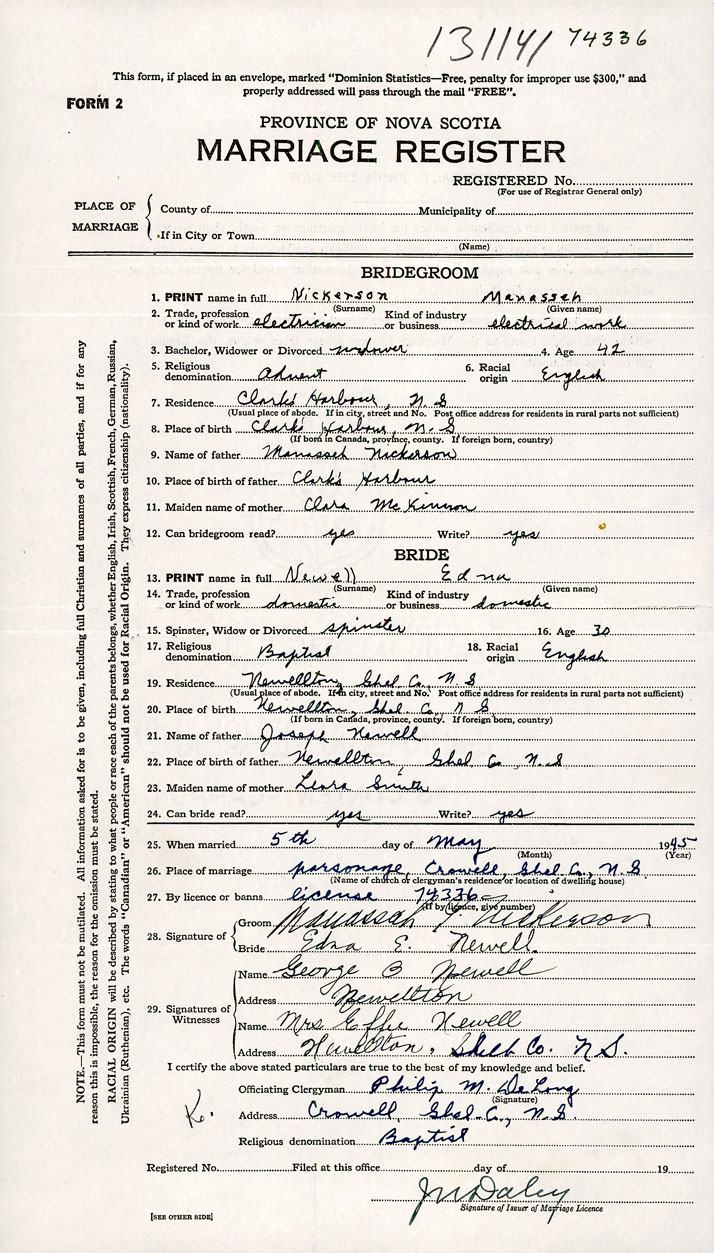 13114/ 74336
This form, if placed in an envelope, marked "Dominion Statistics—Free, penalty for improper use $300," and
properly addressed will pass through the mail "FREE".
FORM 2
PROVINCE OF NOVA SCOTIA
MARRIAGE REGISTER
REGISTERED No.
(For use of Registrar General only)
PLACE OF MARRIAGE
County of Municipality of
If in City or Town
(Name)
BRIDEGROOM
1. PRINT name in full Nickerson Manasseh
(Surname) (Given name)
2. Trade, profession or kind of work electrician Kind of industry or business electrical work
3. Bachelor, Widower or Divorced widower 4. Age 42
5. Religious denomination Advent 6. Racial origin English
7. Residence Clark's Harbour, N.S
(Usual place of abode. If in city, street and No. Post office address for residents in rural parts not sufficient)
8. Place of birth Clark's Harbour, N.S
(If born in Canada, province, county. If foreign born, country)
9. Name of father Manasseh Nickerson
10. Place of birth of father Clark's Harbour
11. Maiden name of mother Clara McKinnon
12. Can bridegroom read? yes Write? yes
BRIDE
13. PRINT name in full Newell Edna
(Surname) (Given name)
14. Trade, profession or kind of work domestic Kind of industry or business domestic
15. Spinster, Widow or Divorced spinster 16. Age 30
17. Religious denomination Baptist 18. Racial origin English
19. Residence Newellton, Shel. Co., N.S
(Usual place of abode. If in city, street and No. Post office address for residents in rural parts not sufficient)
20. Place of birth Newellton, Shel. Co., N.S.
(If born in Canada, province, county. If foreign born, country)
21. Name of father Joseph Newell
22. Place of birth of father Newellton, Shel Co N.S
23. Maiden name of mother Leara Smith
24. Can bride read? yes Write? yes
25. When married 5th day of May 1945
(Month) (Year)
26. Place of marriage parsonage, Crowell, Shel. Co., N.S
(Name of church or clergyman's residence or location of dwelling house)
27. By licence or banns license 74336
(If by licence, give number)
28. Signature of
Groom Manasseh Nickerson
Bride Edna E. Newell
29. Signatures of Witnesses
Name George B Newell
Address Newellton
Name Mrs Effie Newell
Address Newellton, Shelb Co. N.S.
I certify the above stated particulars are true to the best of my knowledge and belief.
Officiating Clergyman Philip M. DeLong
(Signature)
Address Crowell, Shel. Co., N.S.
Religious denomination Baptist
Registered No. Filed at this office day of 19
Signature of Issuer of Marriage Licence
[SEE OTHER SIDE]
NOTE.—This form must not be mutilated. All information asked for is to be given, including full Christian and surnames of all parties, and if for any
reason this is impossible, the reason for the omission must be stated.
RACIAL ORIGIN will be described by stating to what people or race each of the parents belongs, whether English, Irish, Scottish, French, German, Russian,
Ukrainian (Ruthenian), etc. The words "Canadian" or "American" should not be used for Racial Origin. They express citizenship (nationality).